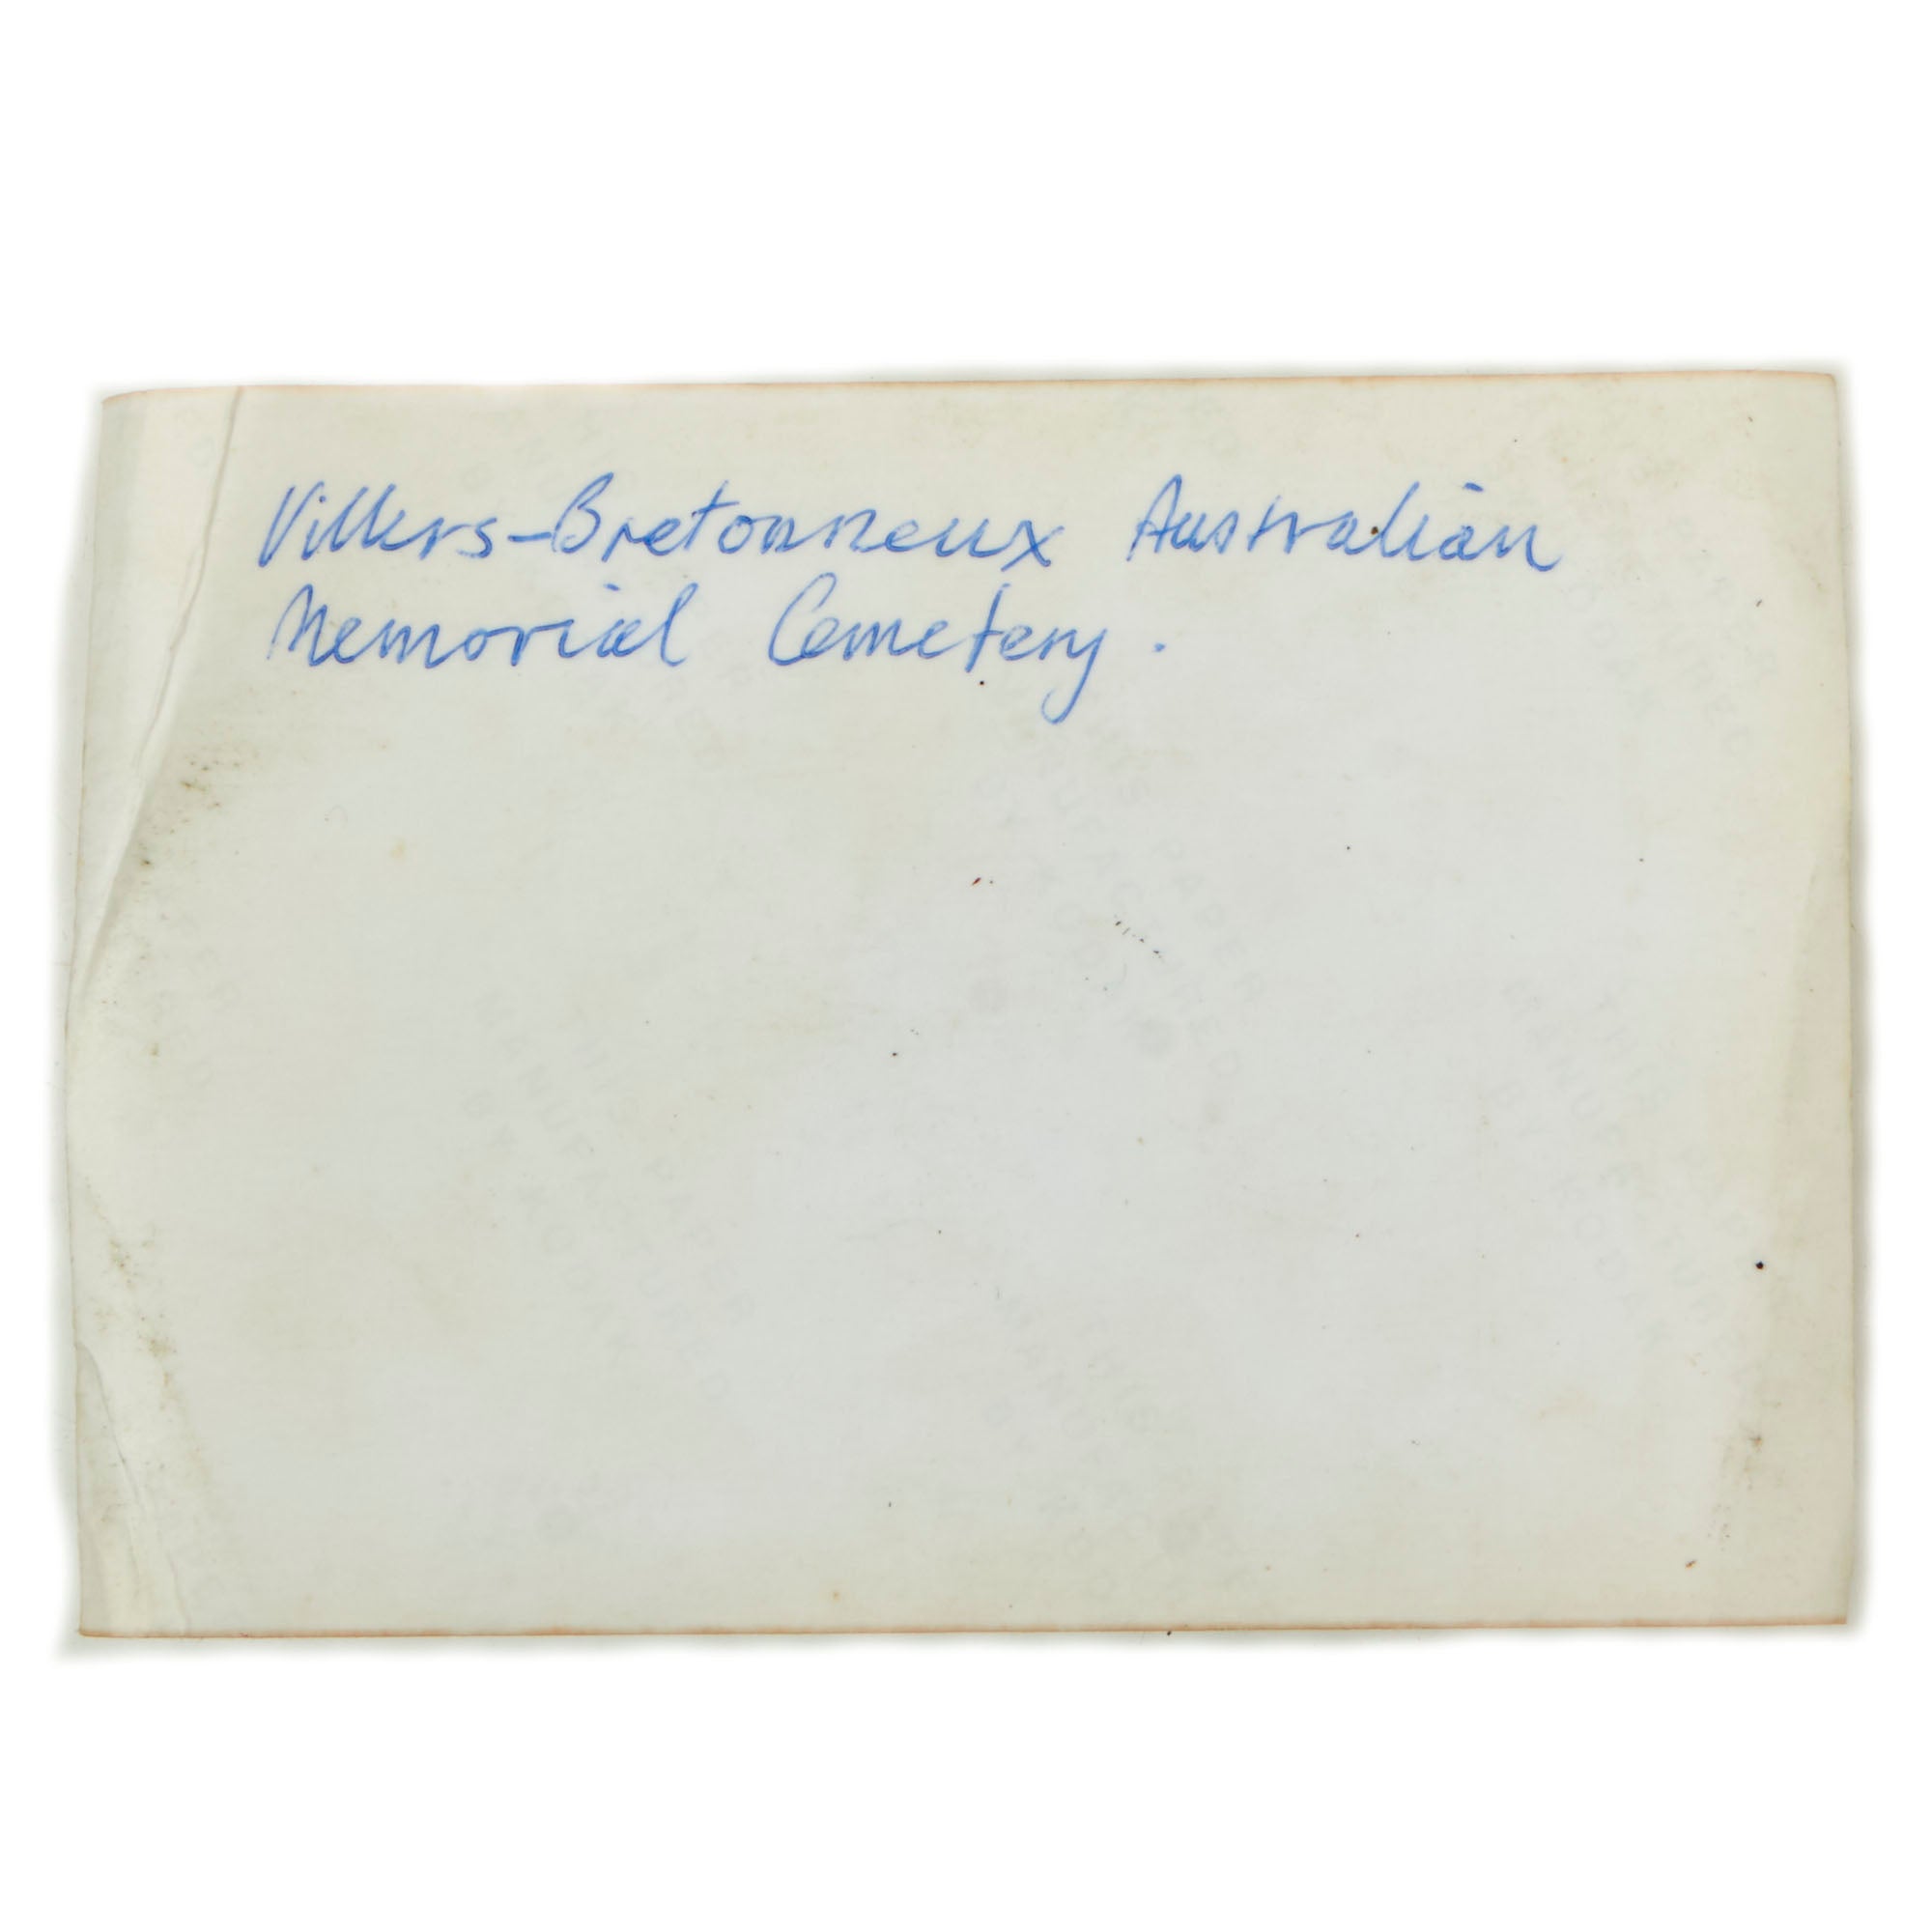 Villers-Bretonneux Australian
Memorial Cemetery.